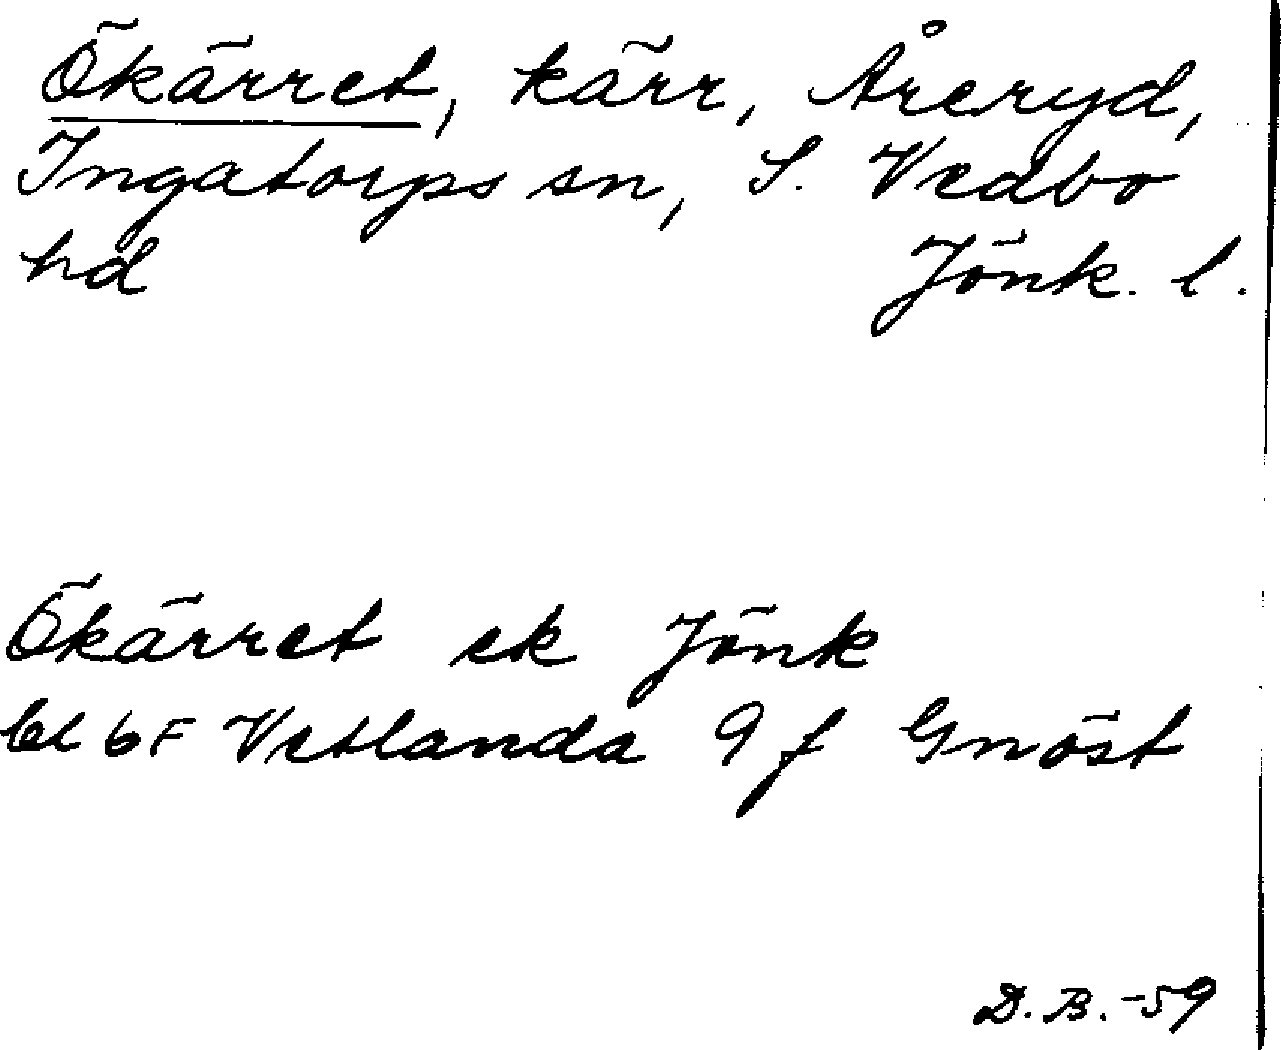 Ökärret, kärr, Åreryd,
Ingatorps sn, S. Vedbo
hd Jönk. l.
Ökärret ek Jönk
bl 6F Vetlanda 9f Gnöst
D.B. -59